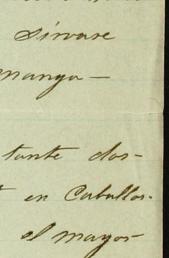 sirvase
manga —
tante dos-
en Caballos.
el mayor